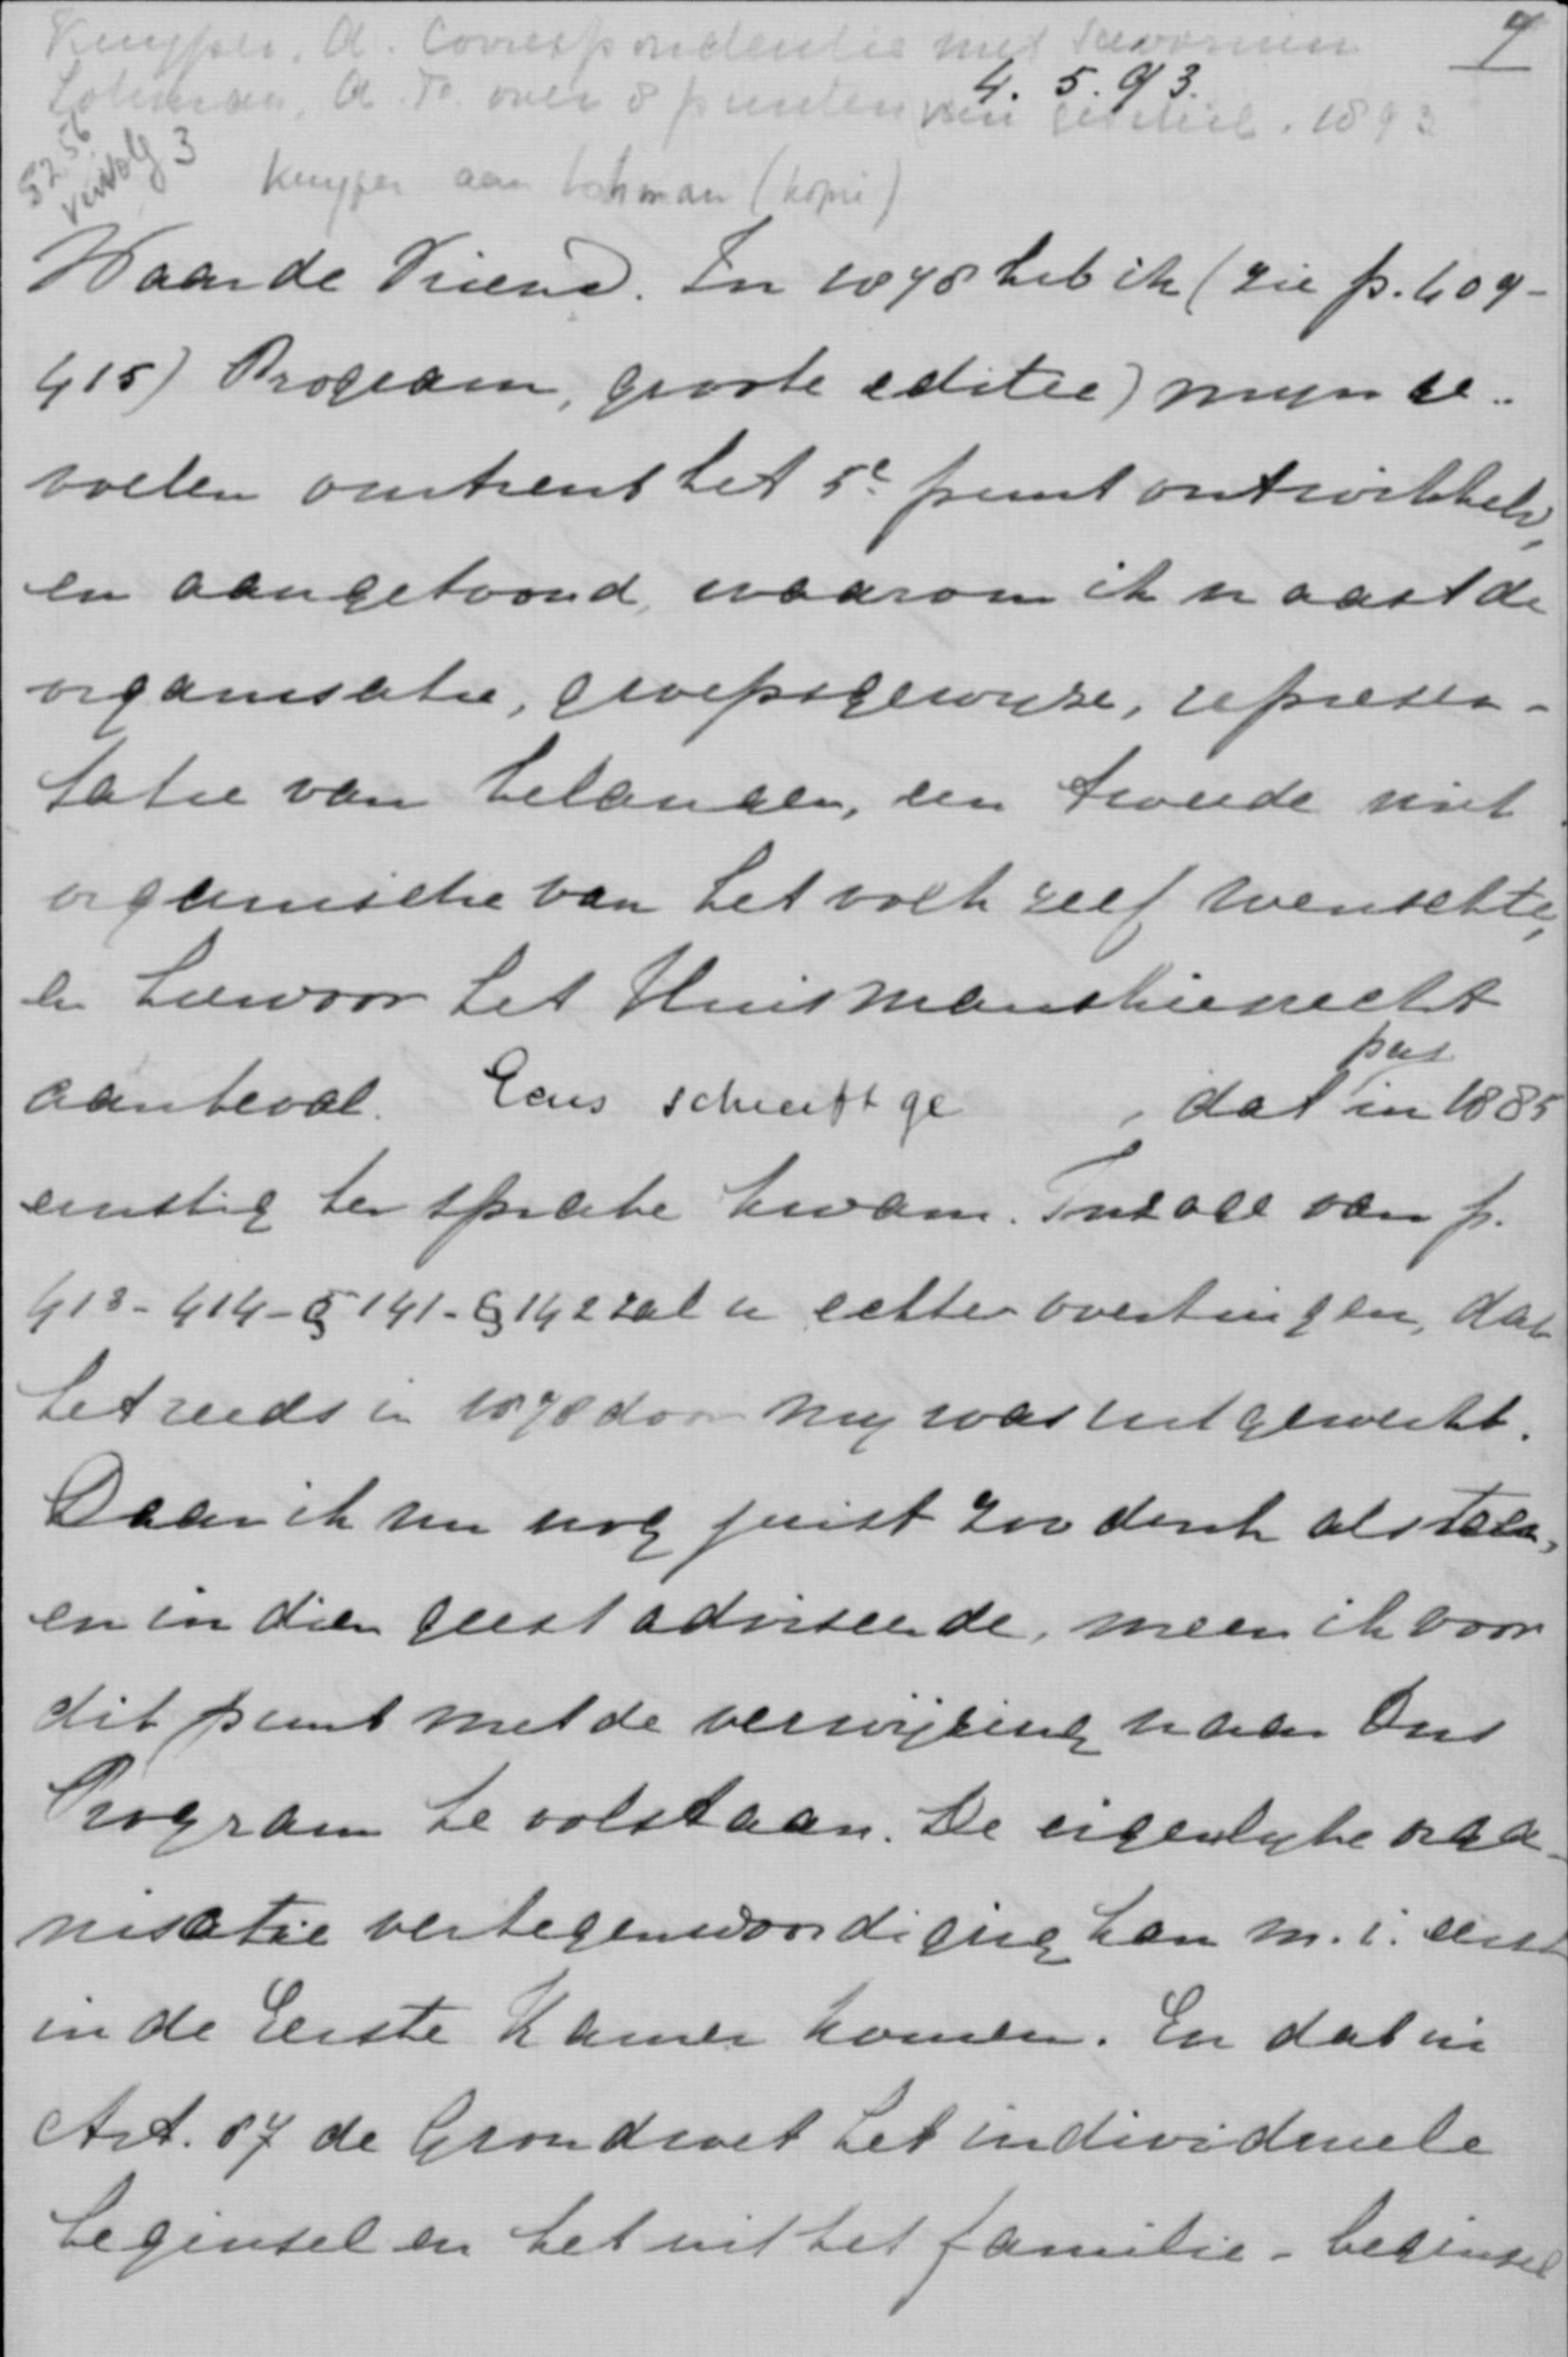 7
Kuyper, A. Correspondentie met Savornin
Lohman, A. F. over 8 punten van geschil. 1893
4. 5. 93.
5256
vervolg 3
Kuyper aan Lohman (kopie)
Waarde Vriend. In 1878 heb ik (zie p. 409-
415) Program, groote editie) mijn ge..
voelen omtrent het 5e punt ontwikkeld,
en aangetoond, waarom ik naast de
organisatie, groepsgewijze, represen-
tatie van belangen, een tweede niet
organische van het volk zelf wenschte,
en hiervoor het Huismanskiesrecht
aanbeval. Eens schreeft ge , dat pas in 1885
ernstig ter sprake kwam. Inzage van p.
413-414-§141-§142 zal u echter overtuigen, dat
het reeds in 1878 door mij was uitgewerkt.
Daar ik nu nog juist zoo denk als toen,
en in dien geest adviseerde, meen ik voor
dit punt met de verwijzing naar Ons
Program te volstaan. De eigenlijke orga-
nisatie vertegenwoordiging kan m.i. eerst
in de Eerste Kamer komen. En dat in
Art. 87 de Grondwet het individueele
beginsel en het uit het familie-beginsel